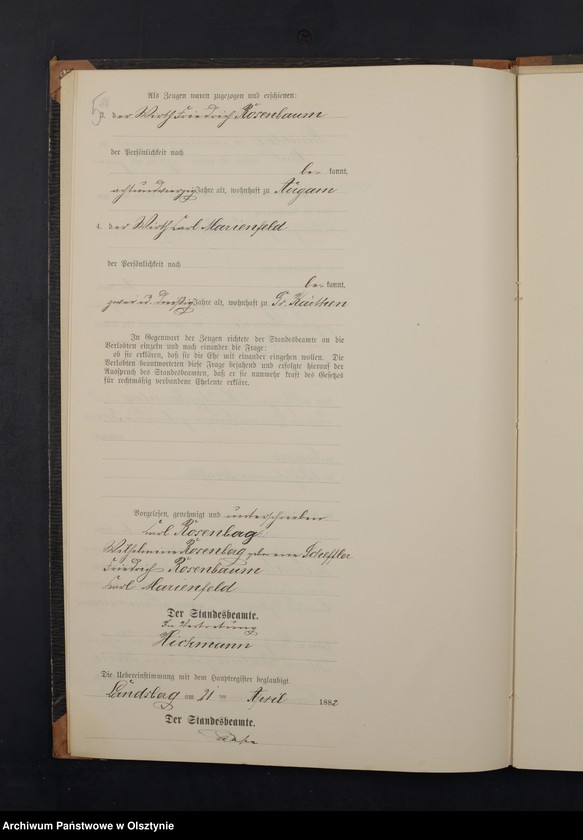 Als Zeugen waren zugezogen und erschienen:
3. der Wirth Friedrich Rosenbaum
der Persönlichkeit nach
be kannt,
achtundvierzig Jahre alt, wohnhaft zu Augam
4. der Wirth Carl Marienfeld
der Persönlichkeit nach
be kannt,
zwei u. dreißig Jahre alt, wohnhaft zu Gr.
In Gegenwart der Zeugen richtete der Standesbeamte an die
Verlobten einzeln und nach einander die Frage:
ob sie erklären, daß sie die Ehe mit einander eingehen wollen. Die
Verlobten beantworteten diese Frage bejahend und erfolgte hierauf der
Ausspruch des Standesbeamten, daß er sie nunmehr kraft des Gesetzes
für rechtmäßig verbundene Eheleute erkläre.
Vorgelesen, genehmigt und unterschrieben
Carl Rosenberg
Wilhelmine Rosenberg geborene Scheffler
Friedrich Rosenbaum
Carl Marienfeld
Der Standesbeamte.
In Vertretung
Hickmann
Die Uebereinstimmung mit dem Hauptregister beglaubigt
Landsberg am 21 ten April 1882
Der Standesbeamte.
Archiwum Państwowe w Olsztynie